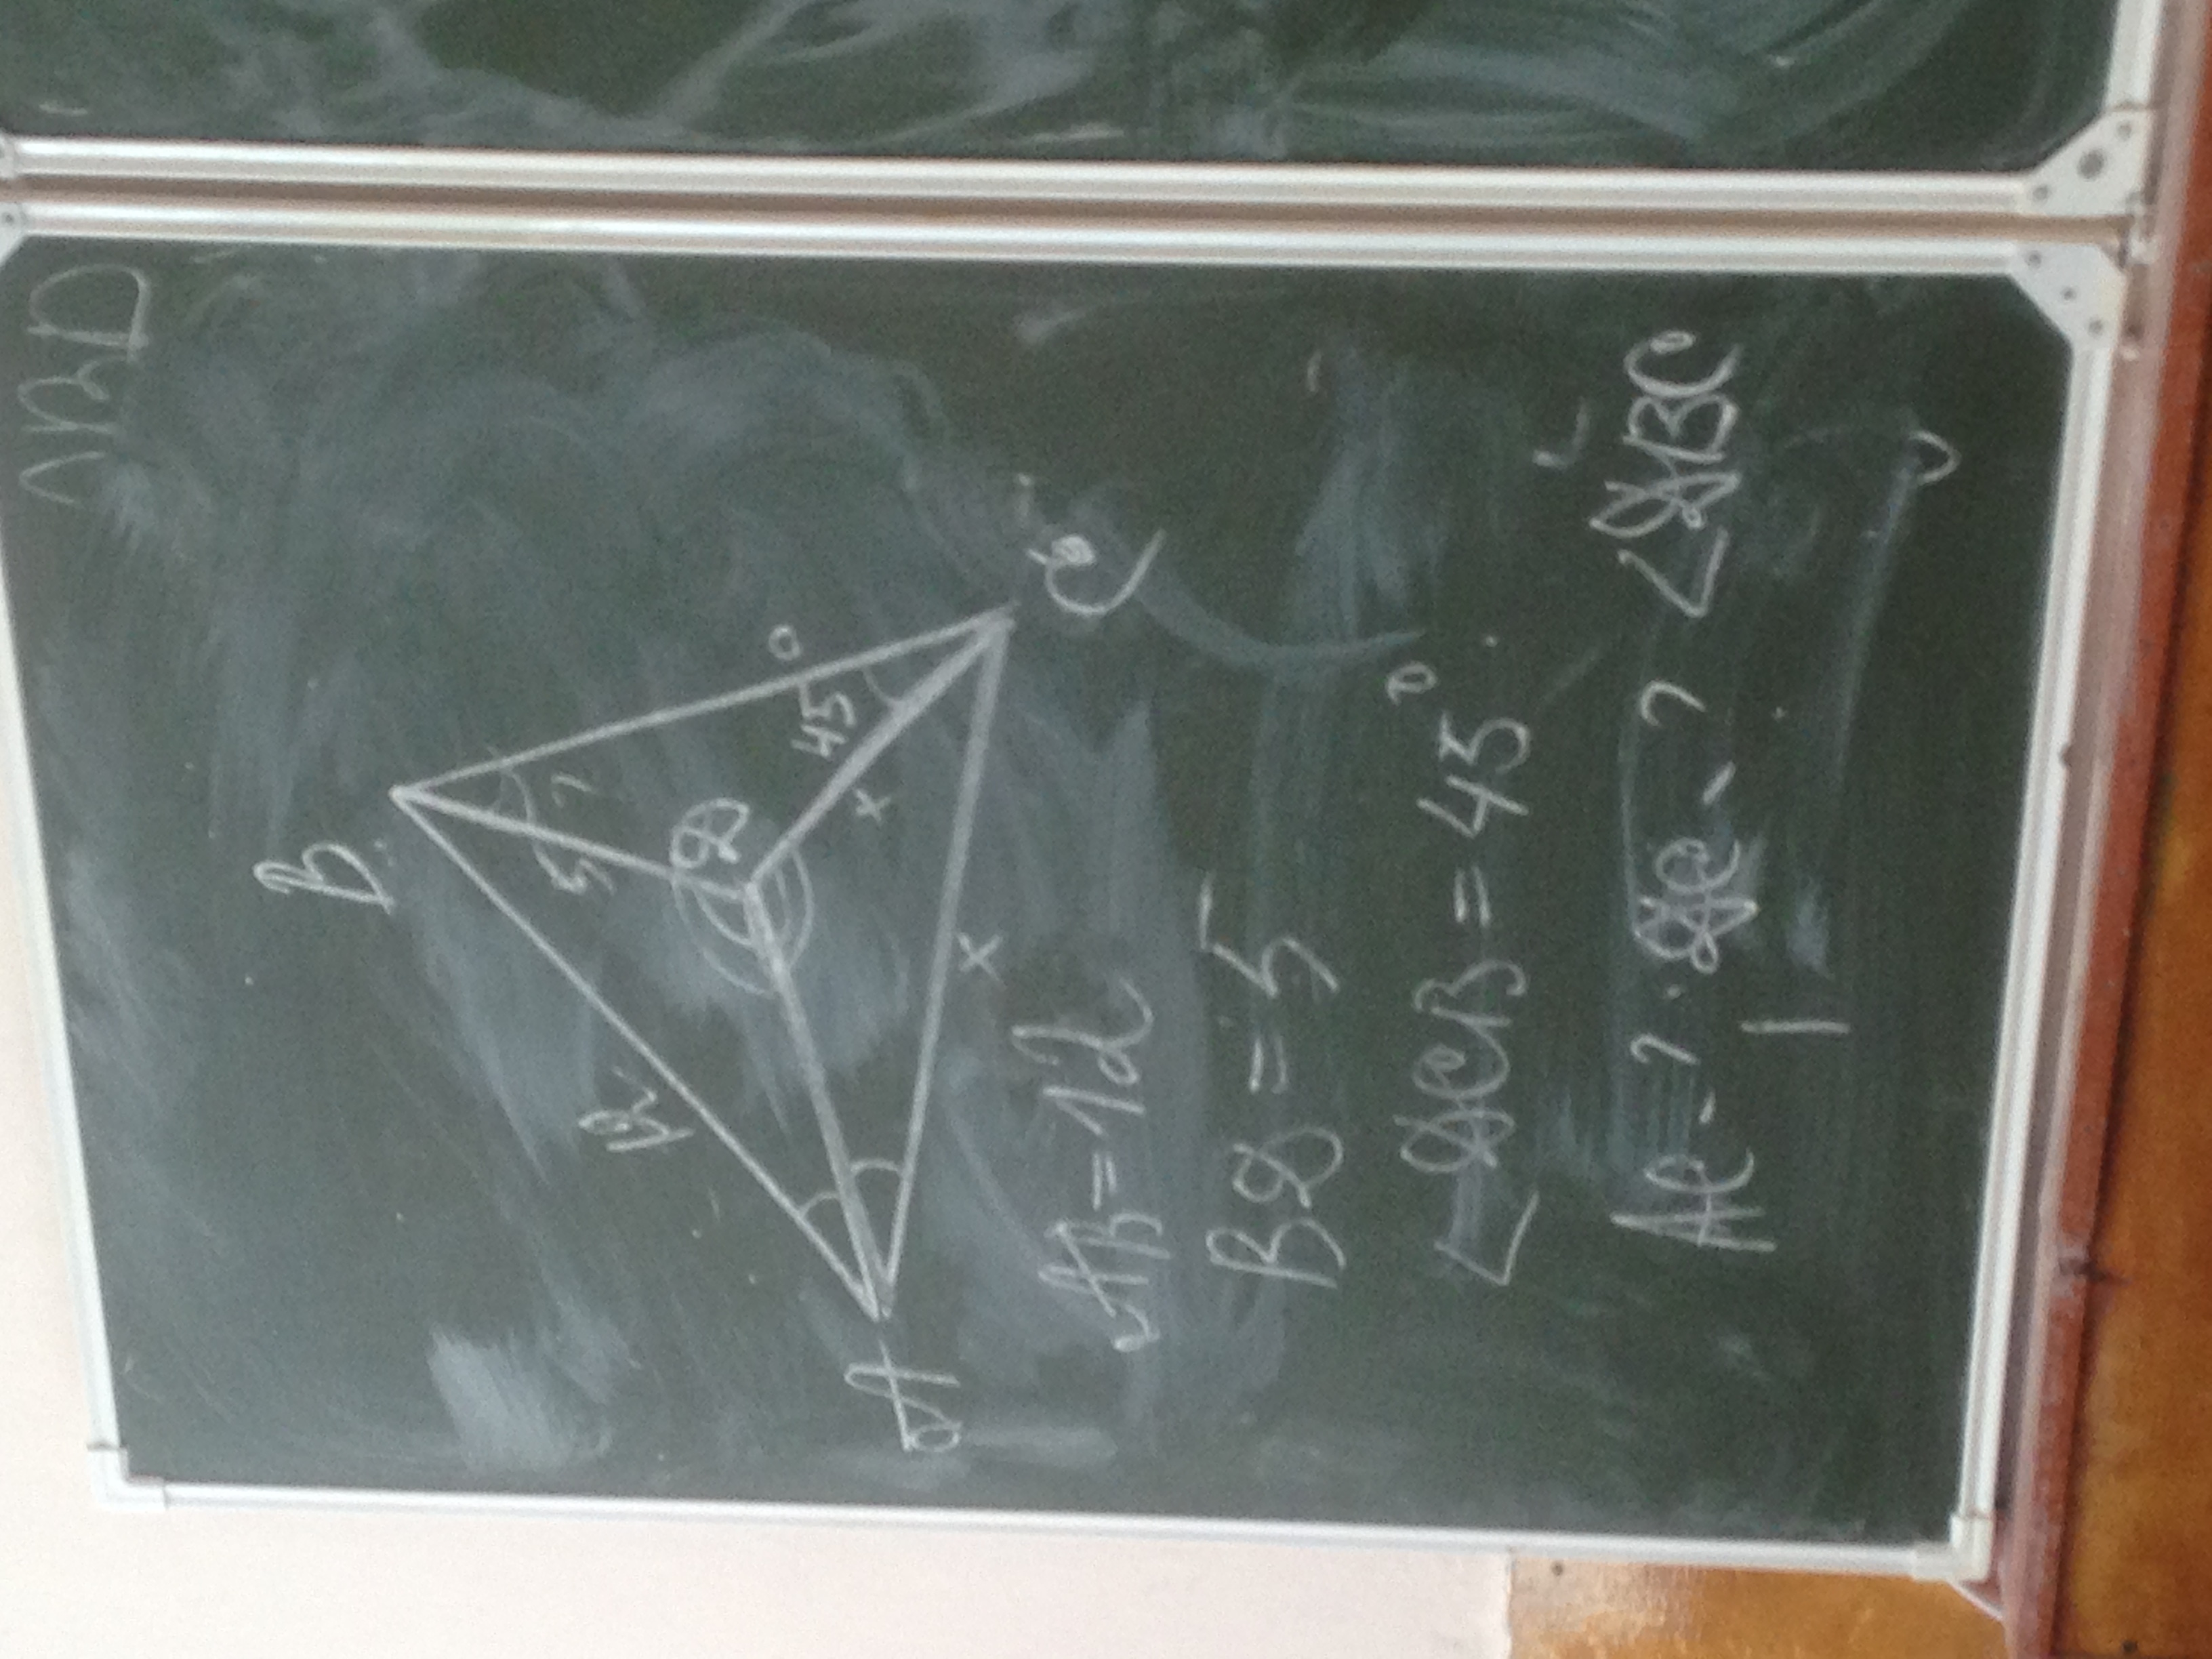 B
12
5
?
D
45°
x
x
A
C
AB=12
BD=5
∠DCB=45°
AC-? DC-? ∠DBC